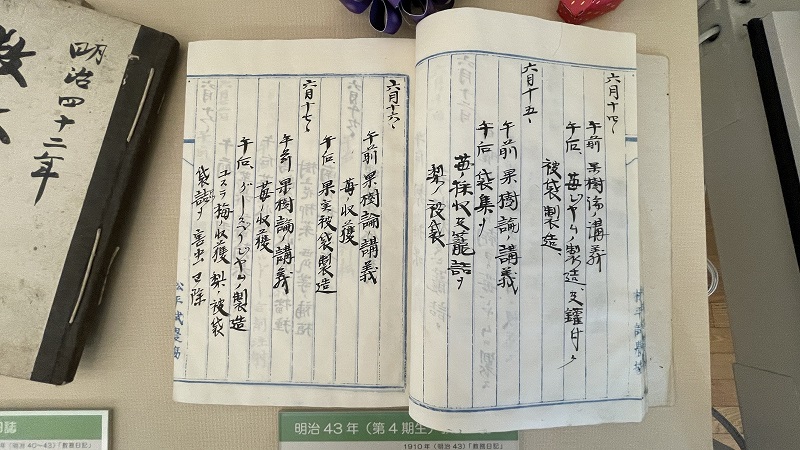 六月十四、
午前 果樹論ノ講義
午后、苺ジヤムノ製造、及罐付ノ
被袋製造
六月十五、
午前 果樹論ノ講義
午后 袋集ノ
苺ノ採收及籠詰ヲ
梨ノ被袋
六月十六、
午前 果樹論ノ講義
苺ノ收獲
午后 果実被袋製造
六月十七、
午前 果樹論ノ講義
苺ノ收獲
午后、グースベリジヤムノ製造
ユスラ梅ノ收獲 梨ノ被袋
袋詰ヲ 害虫
明治四十二年
日誌
年(明治40~43)「教務日記」
明治43年(第4期生)
1910年(明治43)「教務日記」